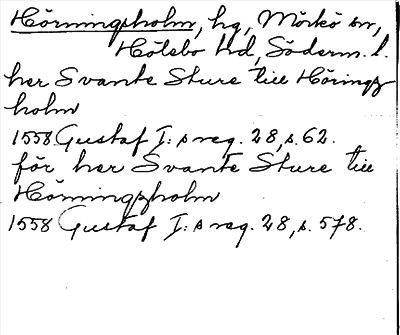 Hörningsholm, hg, Mörkö sn,
Hölebo hd, Söderm. l.
her Svante Sture till Höringz
holm
1558 Gustaf I:s reg. 28, s. 62.
för her Svante Sture till
Hörningzholm
1558 Gustaf I:s reg. 28, s. 578.